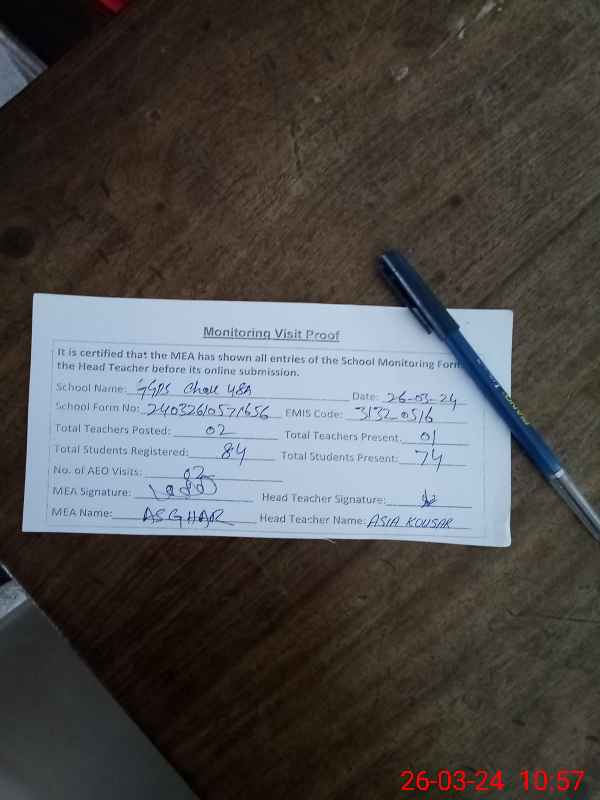 Monitoring Visit Proof
It is certified that the MEA has shown all entries of the School Monitoring Form
the Head Teacher before its online submission.
School Name: GGPS Chak 48A Date: 26-03-24
School Form No: EMIS Code: 31320516
Total Teachers Posted: 02 Total Teachers Present: 01
Total Students Registered: 84 Total Students Present: 74
No. of AEO Visits: 02
MEA Signature: Head Teacher Signature:
MEA Name: ASGHAR Head Teacher Name: ASIA KOUSAR
26-03-24 10:57